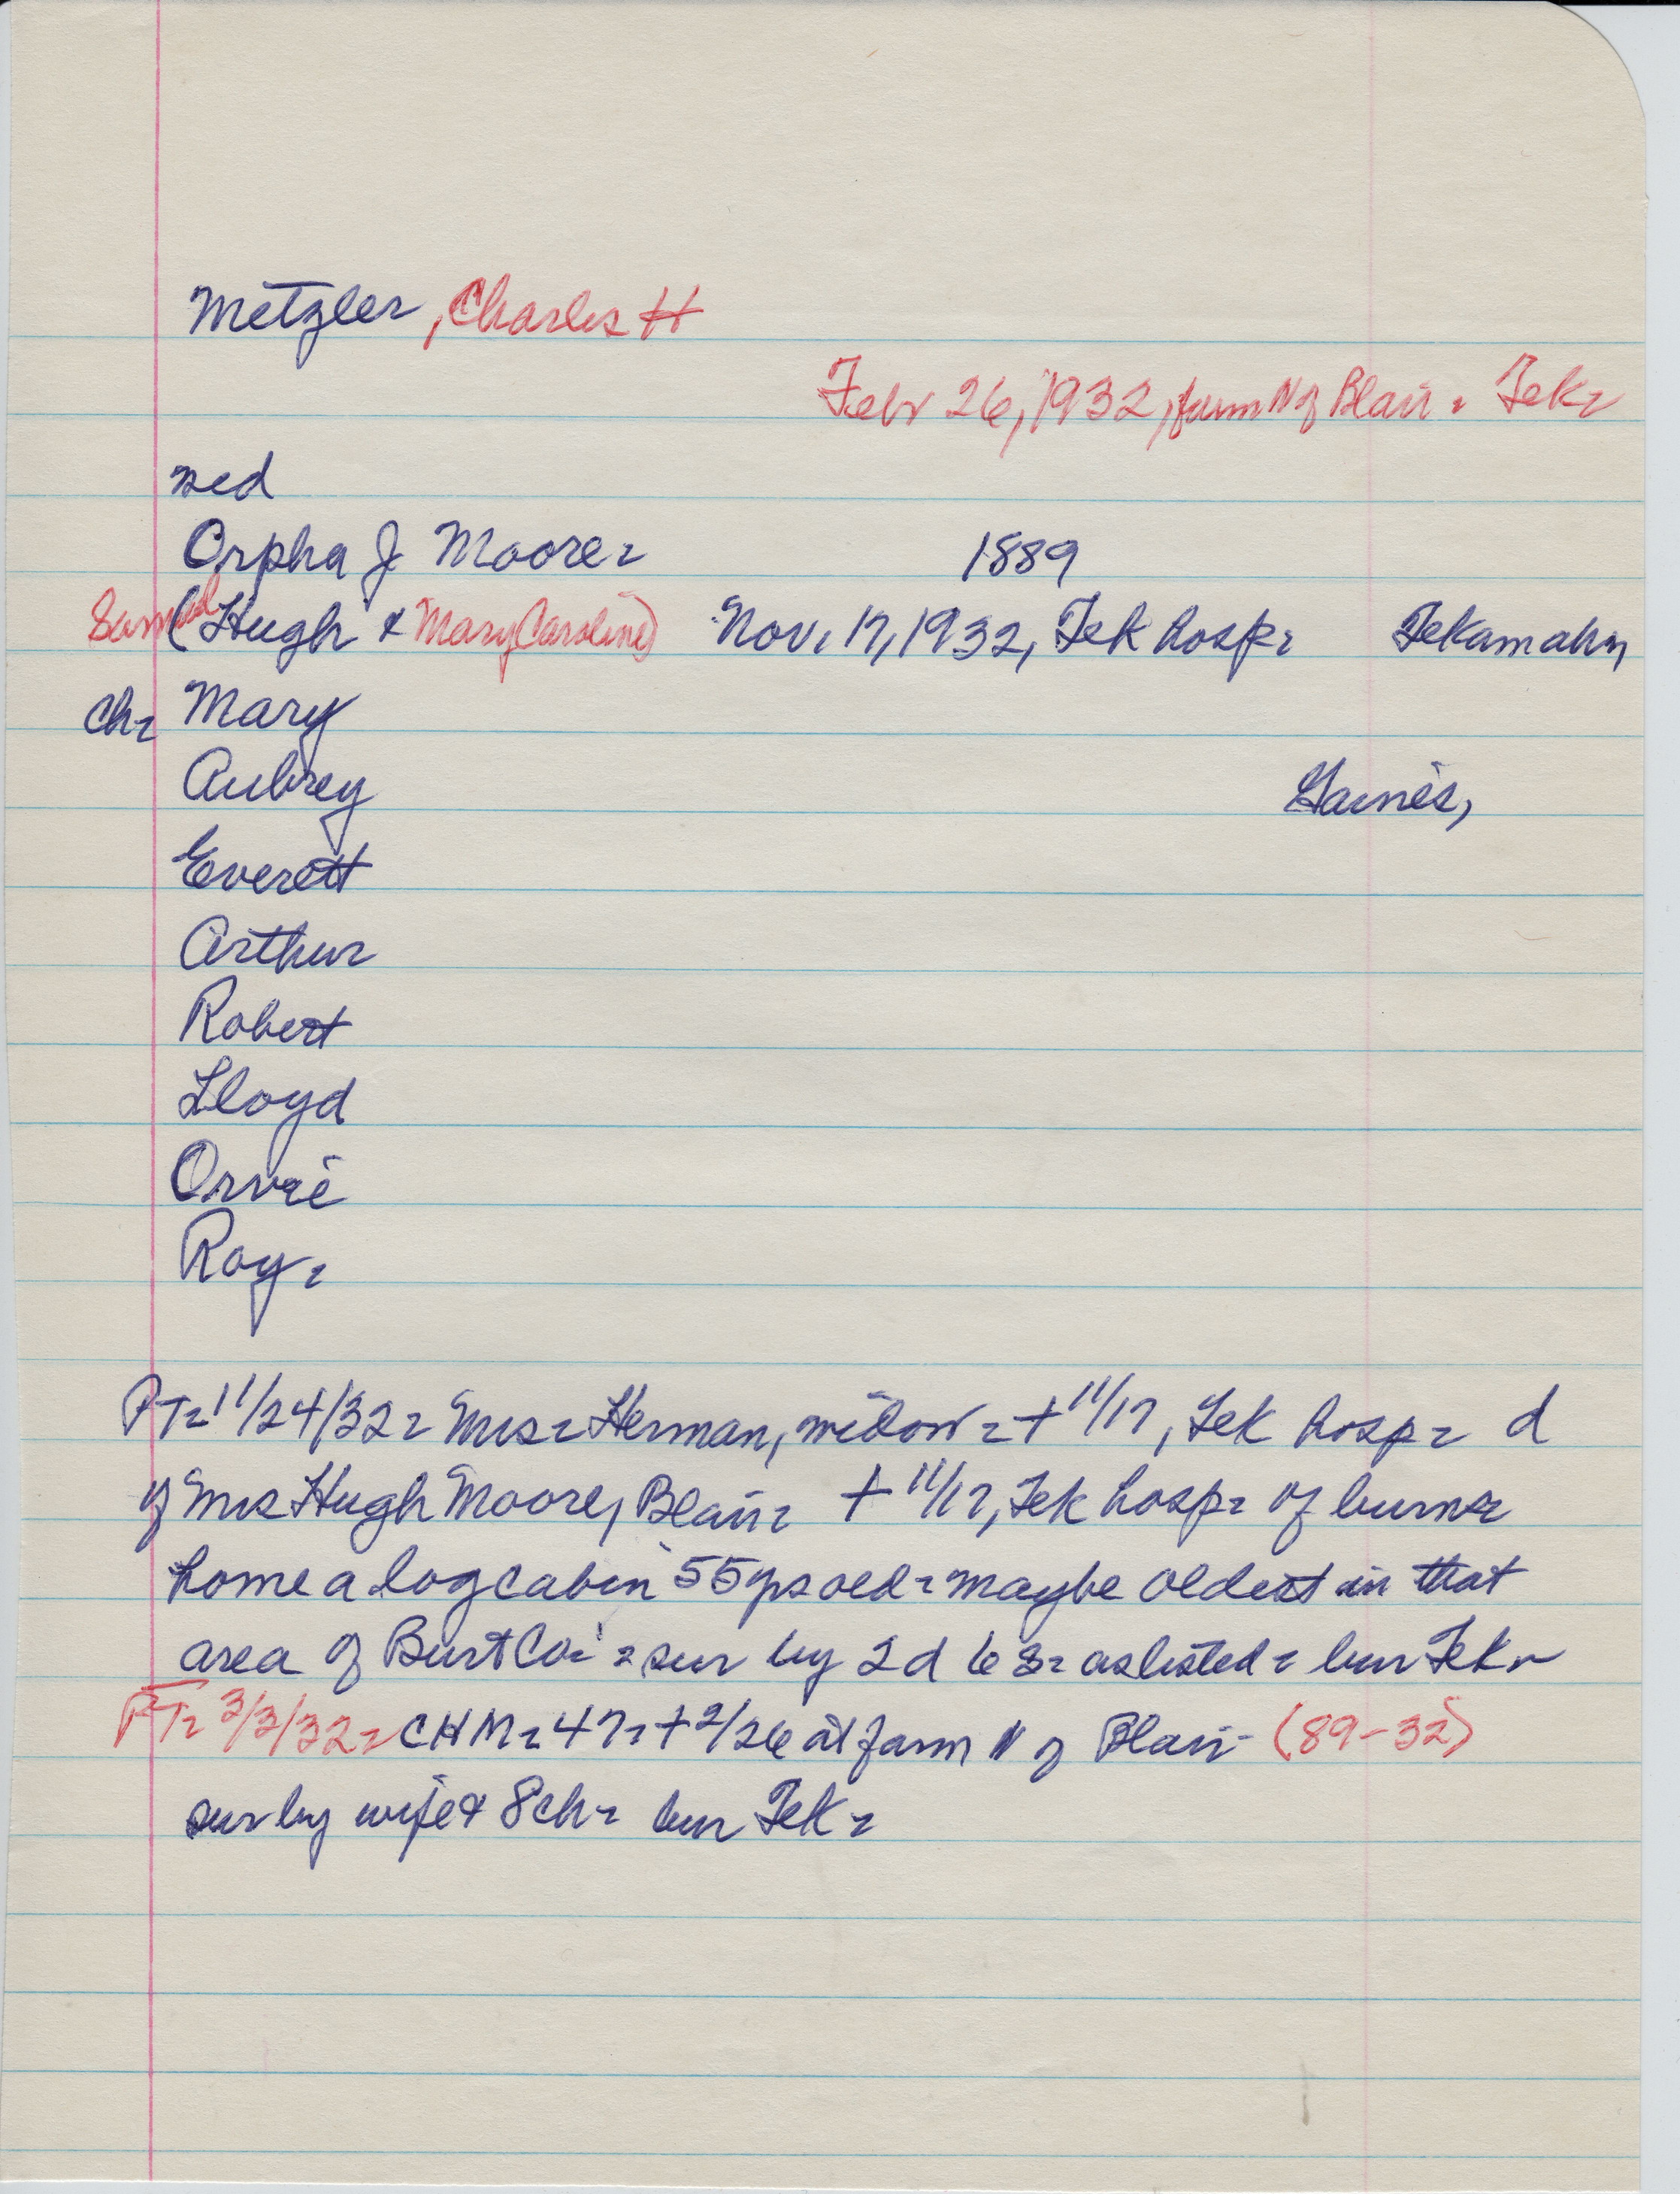 Metzler, Charles H
Febr 26, 1932, farm N of Blair. Tek.
Orpha J Moore. 1889
Samuel (Hugh & Mary Caroline) Nov. 17, 1932, Tek hosp. Tekamah,
Ch. Mary
Aubrey Haines,
Everett
Arthur
Robert
Lloyd
Orvie
Roy.
PT. 11/24/32. Mrs. Herman, widow. + 11/17, Tek hosp. d
of Mrs Hugh Moore, Blair. + 11/17, Tek hosp. of burns.
home a log cabin 55 yrs old. maybe oldest in that
area of Burt Co. . sur by 2 d 6 s. as listed. bur Tek.
PT. 3/3/32. CHM. 47. + 2/26 at farm N of Blair - (89-32)
sur by wife & 8 ch. bur Tek.